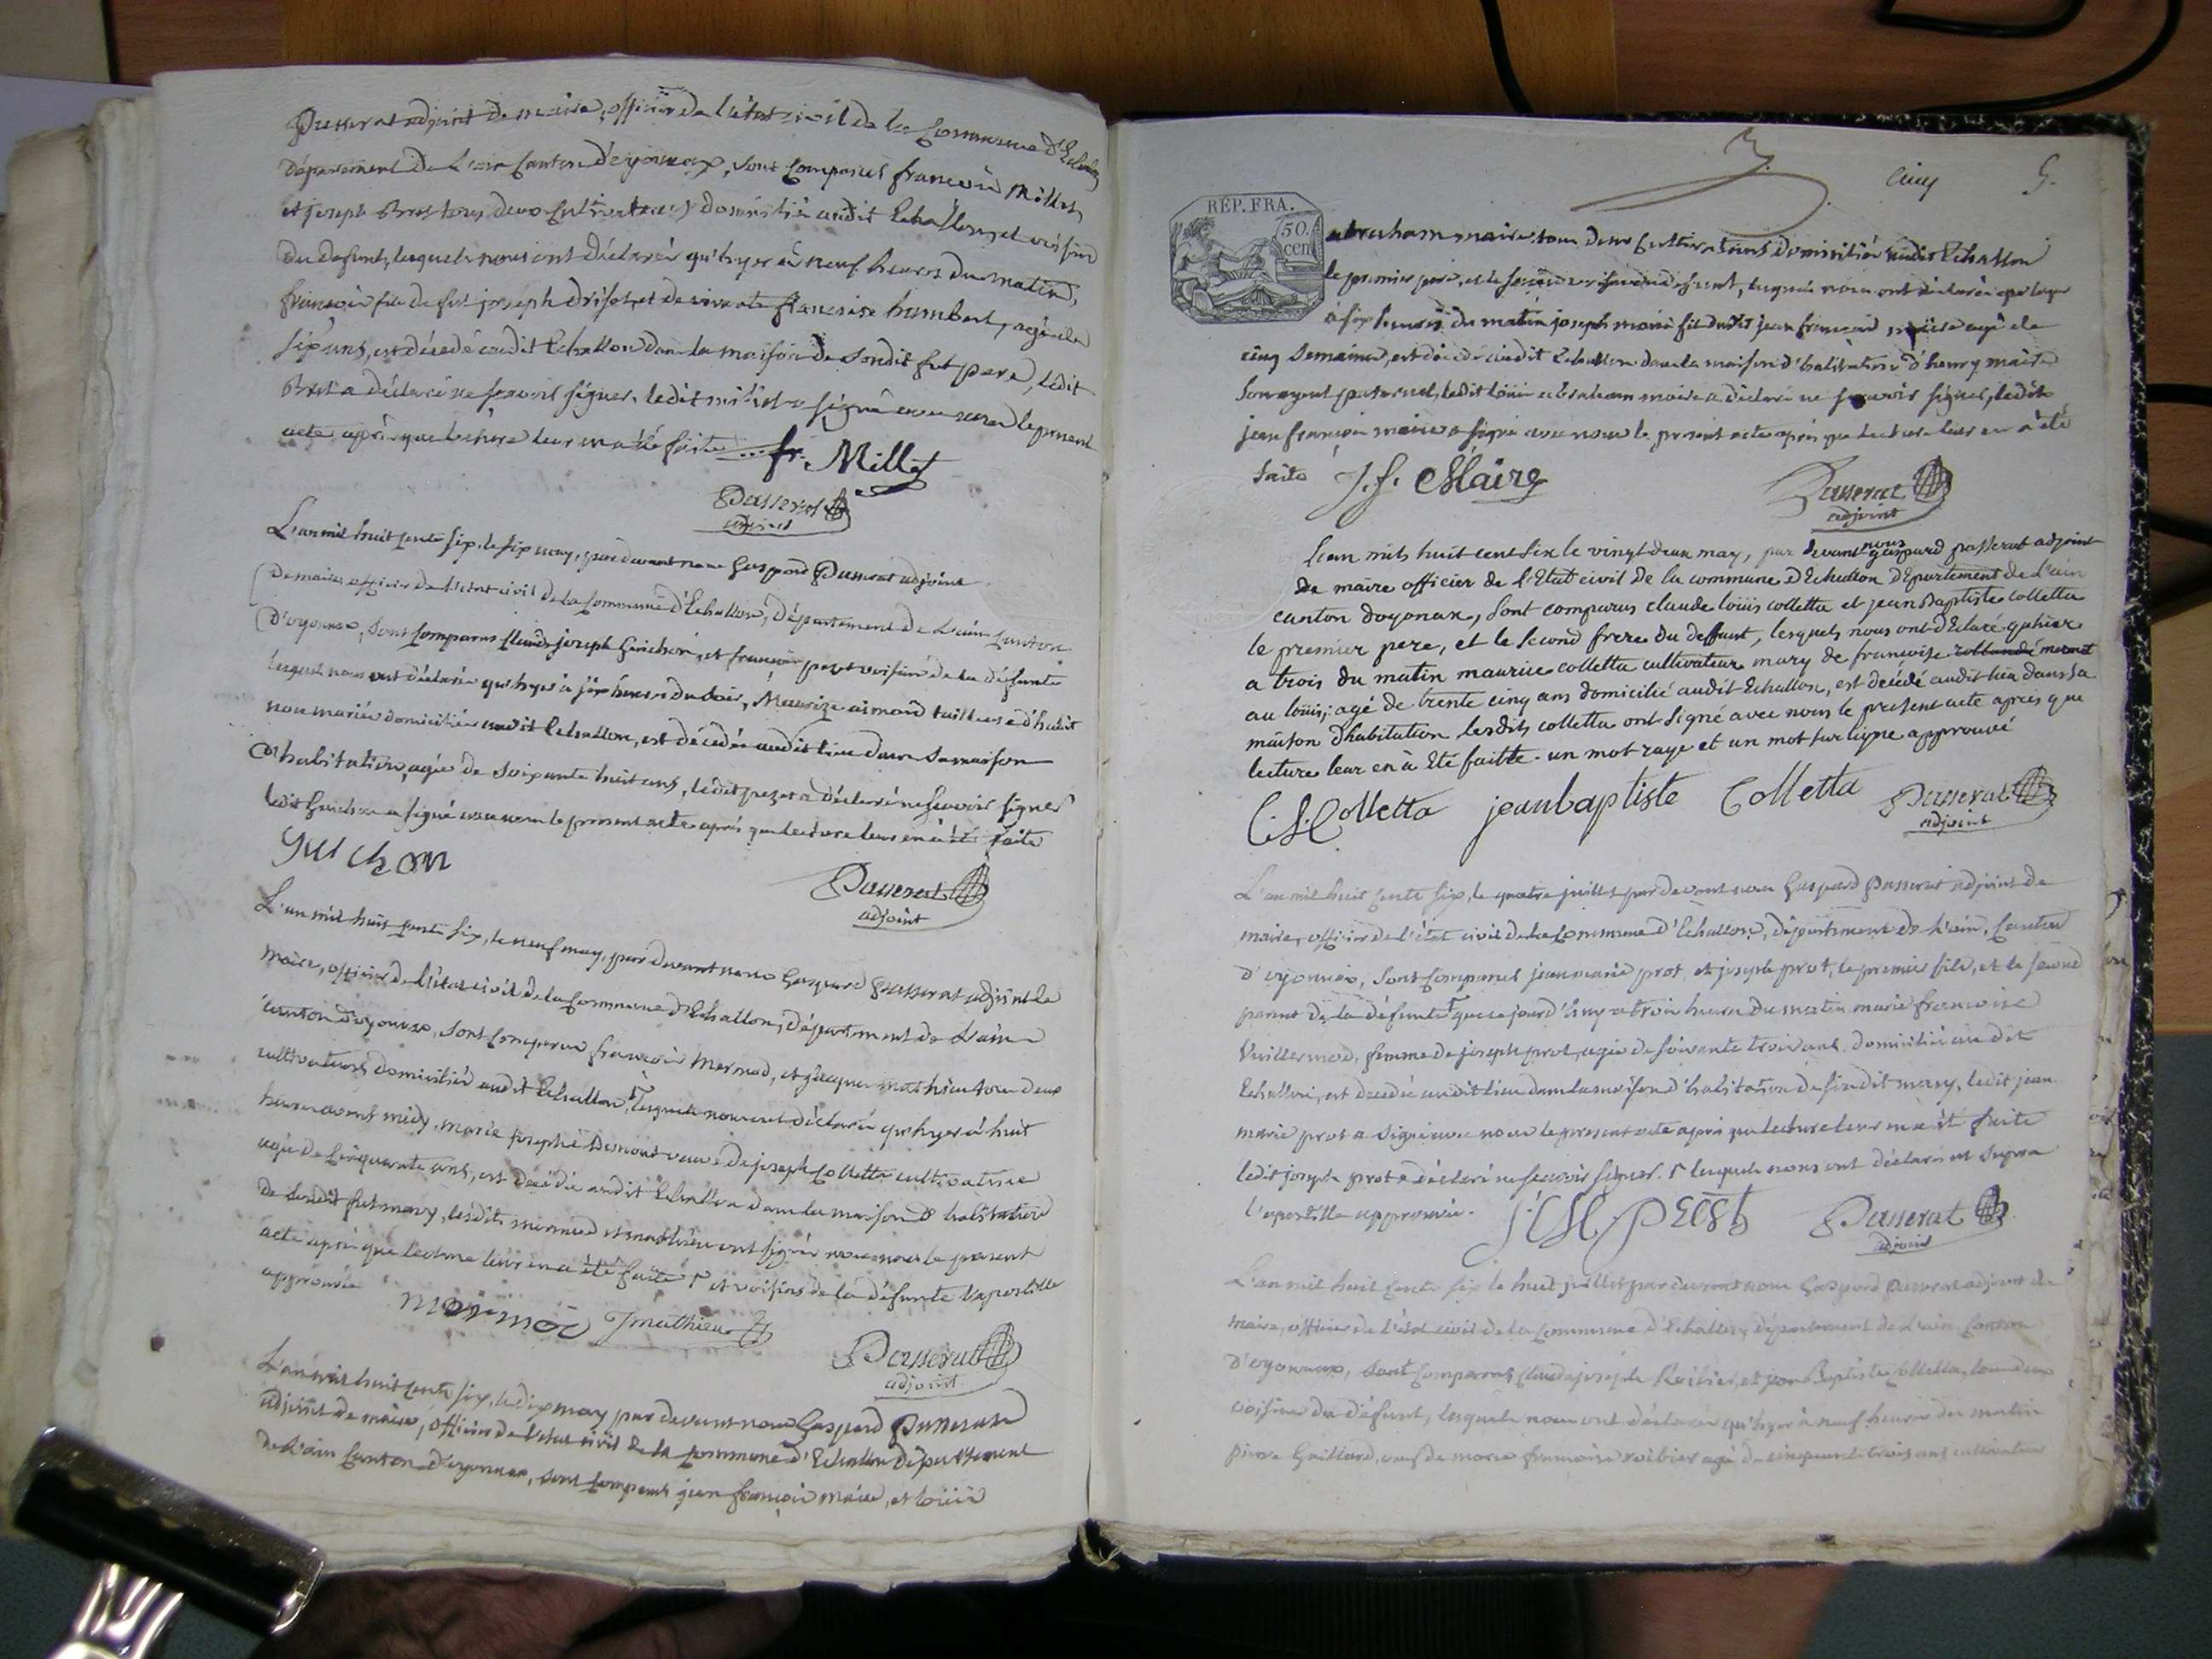 Passerat adjoint de maire, officier de l'état civil de la Commune d'Echallon
département de L'ain Canton d'oyonnax, sont Comparus françois Millet,
et joseph Brest tous deux Cultivateurs domiciliés audit Echallon, et voisins
du defunt, lesquels nous ont déclarés qu'hyer à neuf heures du matin,
françois fils de fut joseph et de vivante françoise humbert, agé de
six ans, est décédé audit Echallon dans la maison de Sondit fut pere, ledit
Brest a déclaré ne scavoir signer, ledit millet a signé avec nous le present
acte après que lecture leur en a été faite ... fr. Millet
Passerat
adjoint
L'an mil huit cents six, le six may, par devant nous Gaspard Passerat adjoint
de maire officier de l'état civil de la Commune d'Echallon, Département de L'ain Canton
D'oyonnax, sont Comparus Claude joseph Guichon, et françois voisins de la défunte
lesquels nous ont déclarés qu'hyer à six heures du soir, tailleuse d'habit
non mariée domiciliée audit Echallon, est décédée audit lieu dans sa maison
d'habitation, agée de soixante huit ans, ledit a déclaré ne scavoir signer
ledit Guichon a signé avec nous le present acte après que lecture leur en à été faite
guichon
Passerat
adjoint
L'an mil huit cents six, le neuf may, par devant nous Gaspard Passerat adjoint de
maire, officier de l'état civil de la Commune d'Echallon, département de L'ain
Canton d'oyonnax, sont Comparus françois Mermod, et jacques mathieu tous deux
cultivateurs domiciliés audit Echallon, lesquels nous ont déclarés qu'hyer à huit
heures avant midy, marie josephe veuve de joseph Colletta cultivatrice
agée de Cinquante ans, est décédée audit Echallon dans la maison d'habitation
de Sondit fut mary, lesdits mermod et mathieu ont signés avec nous le present
acte après que lecture leur en a été faite et voisins de la défunte l'apostille
approuvée mermod Jmathieu
Passerat
adjoint
L'an mil huit cents six, le dix may par devant nous Gaspard Passerat
adjoint de maire, officier de l'état civil de la Commune d'Echallon département
de L'ain Canton d'oyonnax, sont Comparus jean françois maire, et loüis
cinq 5.
RÉP. FRA.
50. cen
abraham maire tous deux Cultivateurs domiciliés audit Echallon
le premier pere, et le second voisin du défunt, lesquels nous ont déclarés que hyer
à six heures du matin joseph maire fils dudit jean françois maire agé de
cinq Semaines, est décédé audit Echallon dans la maison d'habitation d'henry maire
Son ayeul paternel, ledit loüis abraham maire a déclaré ne scavoir signer, ledit
jean françois maire a signé avec nous le present acte après que lecture leur en a été
faite J. f. Maire
Passerat
adjoint
L'an mils huit cent Six le vingt deux may, par devant nous gaspard passerat adjoint
de maire officier de l'Etat civil de la commune d'Echallon Département de L'ain
canton doyonax, sont comparus claude loüis colletta et jean Baptiste colletta
le premier pere, et le second frere du deffunt, lesquels nous ont déclaré quhier
a trois du matin maurice colletta cultivateur mary de francoise mermet
au loüis; agé de trente cinq ans domicilié audit Echallon, est décédé audit lieu dans sa
maison dhabitation lesdits colletta ont signé avec nous le present acte après que
lecture leur en à Eté faitte. un mot rayé et un mot sur ligne approuvé
C. L. Colletta jeanbaptiste Colletta Passerat
adjoint
L'an mil huit cents six, le quatre juillet par devant nous Gaspard Passerat adjoint de
maire, officier de l'état civil de la Commune d'Echallon, département de L'ain, Canton
d'oyonnax, sont Comparus jean marie prost et joseph prost, le premier fils, et le second
parent de la défunte que ce jourd'huy a trois heures du matin marie françoise
Vuillermod, femme de joseph prost, agée de soixante trois ans domiciliée audit
Echallon, est décédée audit lieu dans la maison d'habitation de sondit mary, ledit jean
marie prost a signé avec nous le present acte après que lecture leur en a été faite
ledit joseph prost a déclaré ne scavoir signer. lesquels nous ont déclarés ut supra
l'apostille approuvée. Passerat
adjoint
L'an mil huit cents six le huit juillet par devant nous Gaspard Passerat adjoint de
maire, officier de l'état civil de la Commune d'Echallon département de L'ain Canton
D'oyonnax, sont Comparus Claude joseph et jean Baptiste Colletta, tous deux
voisins du défunt, lesquels nous ont déclarés qu'hyer à neuf heures du matin
pierre Gaillard, veuf de marie françoise agé de cinquante trois ans cultivateur